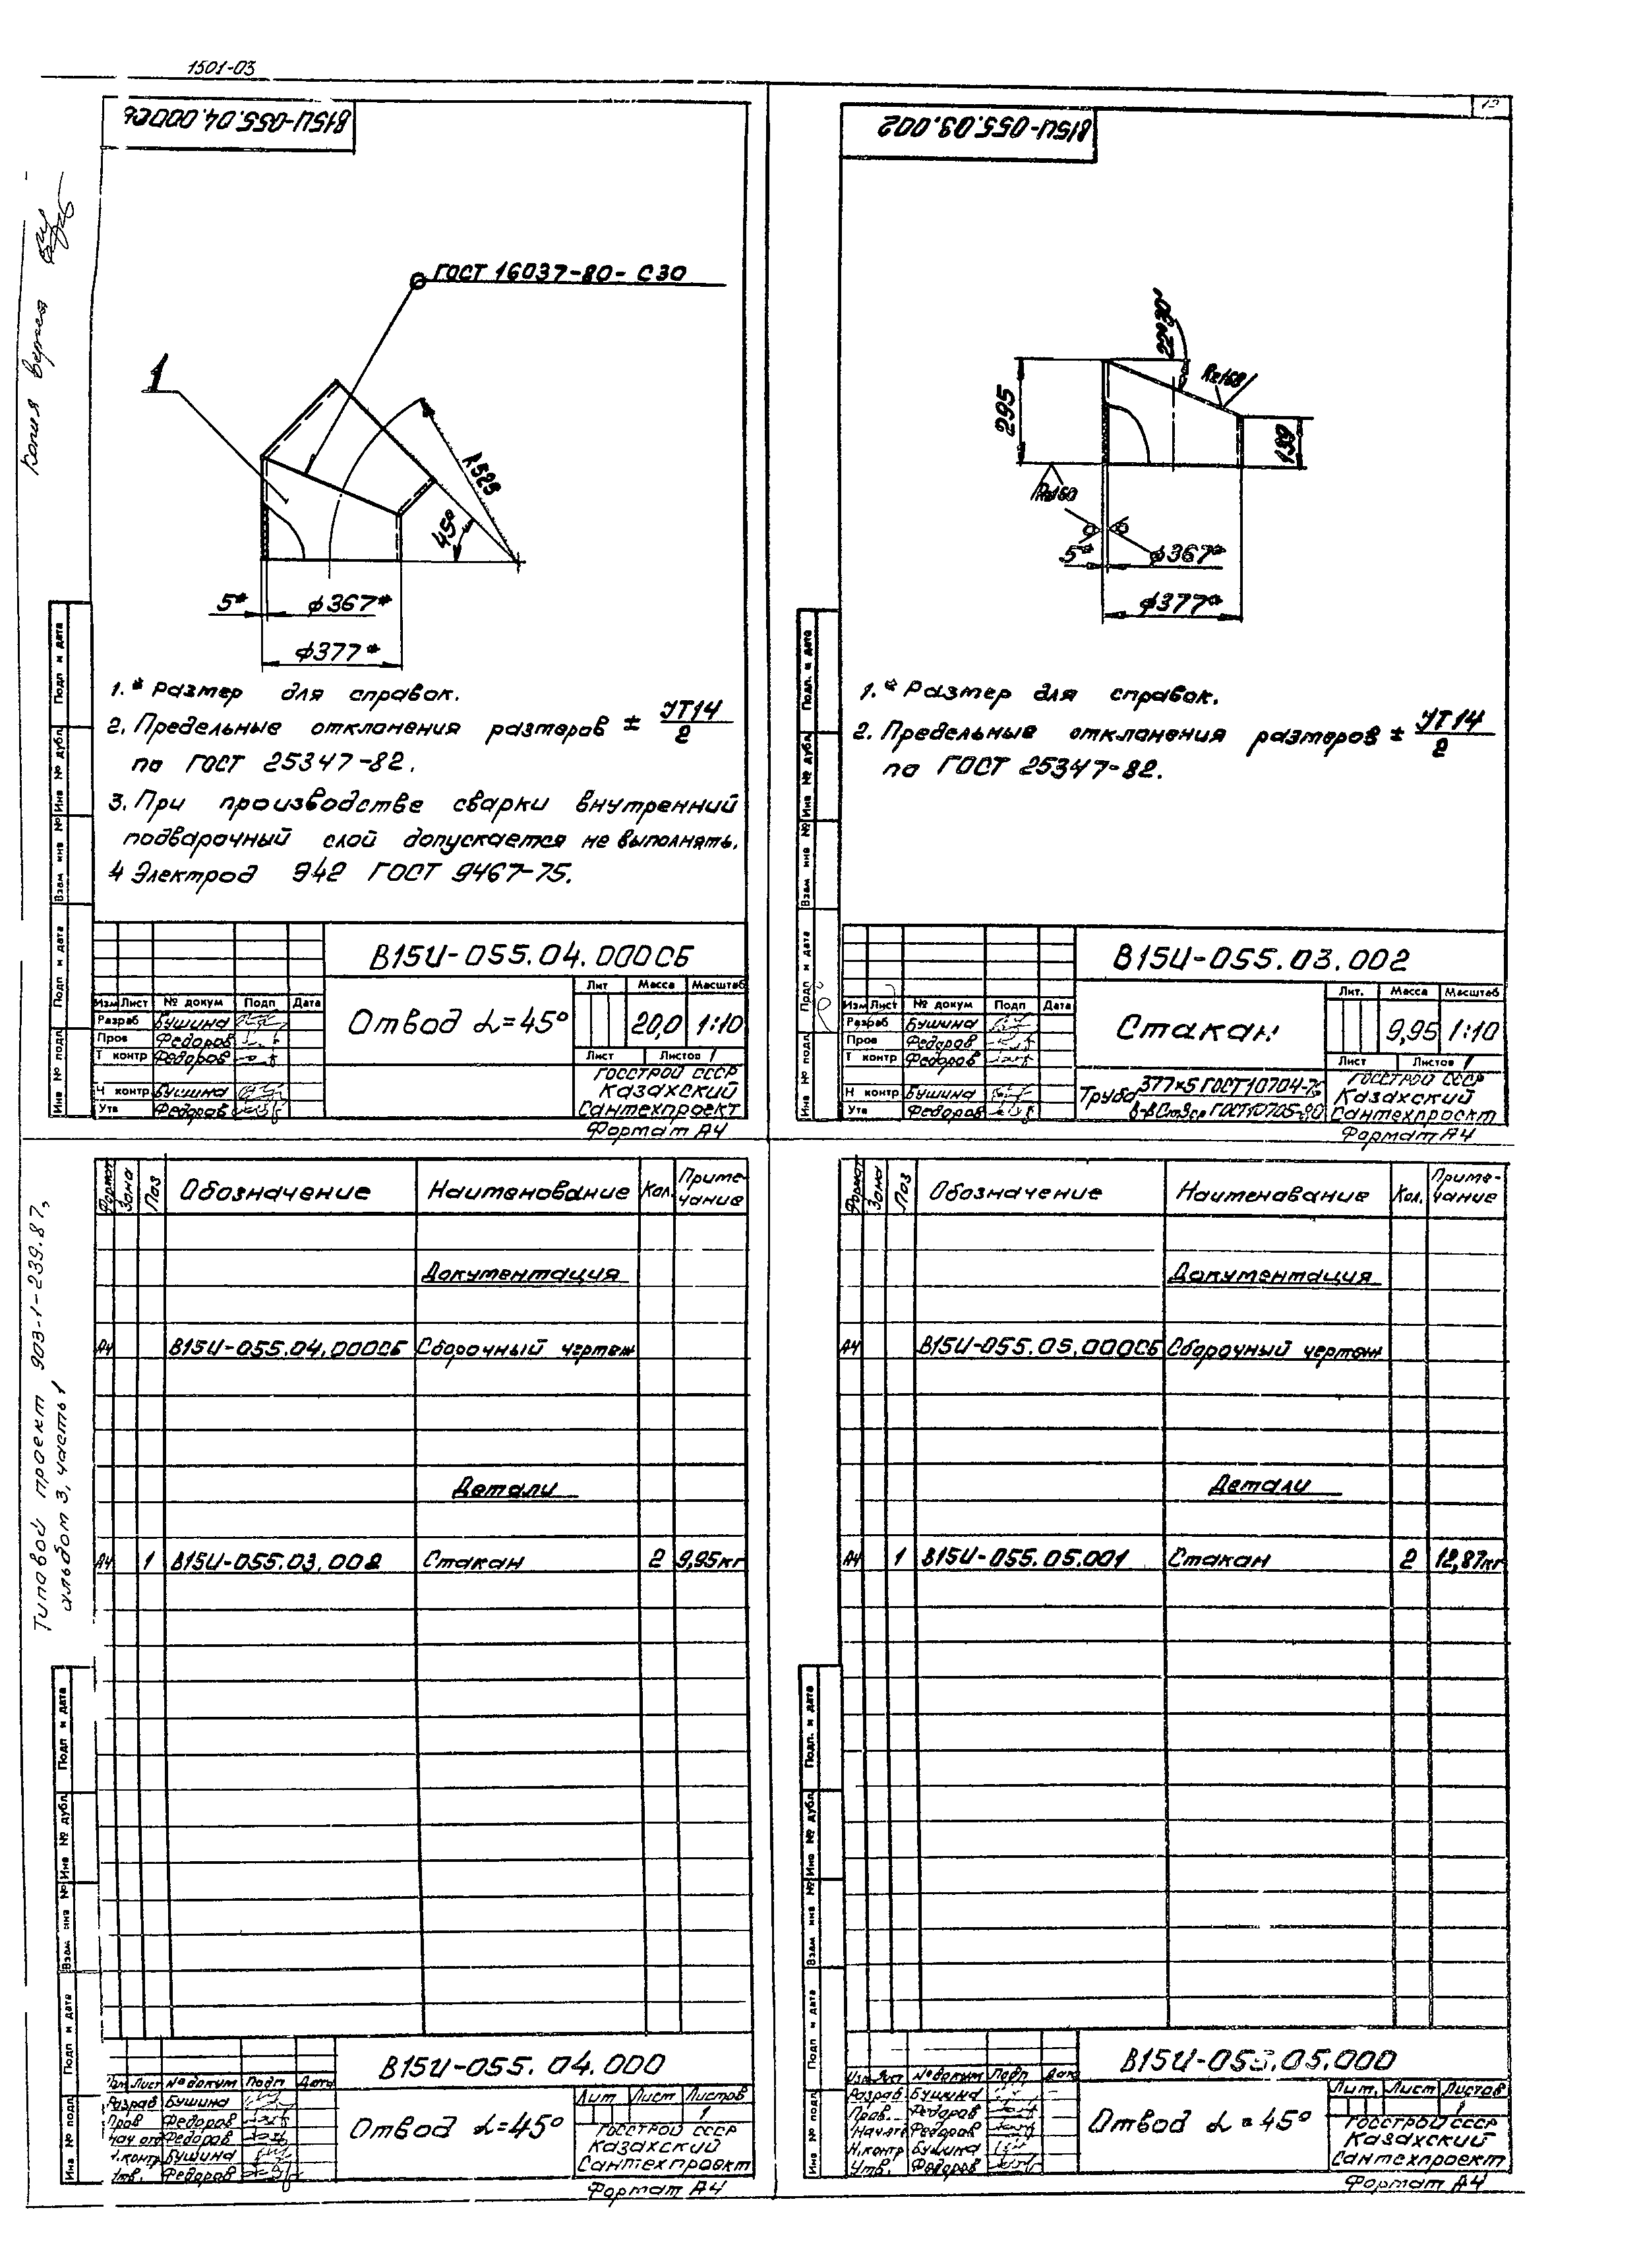 1501-03
В15Ц-055.04.000СБ
ГОСТ 16037-80- С30
1
R525
45°
5*
ф367*
ф377*
1.* Размер для справок.
2. Предельные отклонения размеров ± УТ14/2
по ГОСТ 25347-82.
3. При производстве сварки внутренний
подварочный слой допускается не выполнять.
4 Электрод Э42 ГОСТ 9467-75.
В15Ц-055.04.000СБ
Изм Лист № докум Подп Дата
Разраб Бушина
Пров Федоров
Т контр Федоров
Н контр Бушина
Утв Федоров
Отвод α=45°
Лит Масса Масштаб
20,0 1:10
Лист Листов 1
ГОССТРОЙ СССР
Казахский
Сантехпроект
Формат А4
Подп и дата
Инв № дубл
Взам инв №
Подп и дата
Инв № подл
Копия верна
В15Ц-055.03.002
22°30'
Rz160
295
139
Rz160
5*
ф367*
ф377*
1.* Размер для справок.
2. Предельные отклонения размеров ± УТ14/2
по ГОСТ 25347-82.
В15Ц-055.03.002
Изм Лист № докум Подп Дата
Разраб Бушина
Пров Федоров
Т контр Федоров
Н контр Бушина
Утв Федоров
Стакан
Лит. Масса Масштаб
9,95 1:10
Лист Листов 1
Труба 377х5 ГОСТ10704-76
ГОСТ10705-80
ГОССТРОЙ СССР
Казахский
Сантехпроект
Формат А4
Подп. и дата
Инв № дубл
Взам инв №
Подп и дата
Инв № подл
Типовой проект 903-1-239.87,
альбом 3, часть 1
Формат Зона Поз Обозначение Наименование Кол. Примечание
Документация
А4 В15Ц-055.04.000СБ Сборочный чертеж
Детали
А4 1 В15Ц-055.03.002 Стакан 2 9,95кг
В15Ц-055.04.000
Изм Лист № докум Подп Дата
Разраб Бушина
Пров Федоров
Нач отд Федоров
Н.контр Бушина
Утв. Федоров
Отвод α=45°
Лит Лист Листов
1
ГОССТРОЙ СССР
Казахский
Сантехпроект
Формат А4
Подп и дата
Инв № дубл
Взам инв №
Подп и дата
Инв № подл
Формат Зона Поз Обозначение Наименование Кол. Примечание
Документация
А4 В15Ц-055.05.000СБ Сборочный чертеж
Детали
А4 1 В15Ц-055.05.001 Стакан 2 12,87кг
В15Ц-055.05.000
Изм Лист № докум Подп Дата
Разраб Бушина
Пров. Федоров
Нач отд Федоров
Н.контр Бушина
Утв. Федоров
Отвод α=45°
Лит. Лист Листов
1
ГОССТРОЙ СССР
Казахский
Сантехпроект
Формат А4
Подп. и дата
Инв № дубл
Взам инв №
Подп и дата
Инв № подл